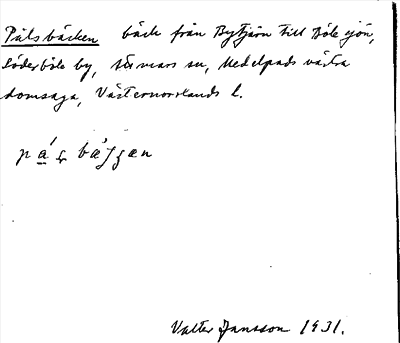 Pålsbäcken bäck från Bytjärn till Bölesjön,
Söderböle by, sn, Medelpads västra
domsaga, Västernorrlands l.
Valter Jansson 1931.